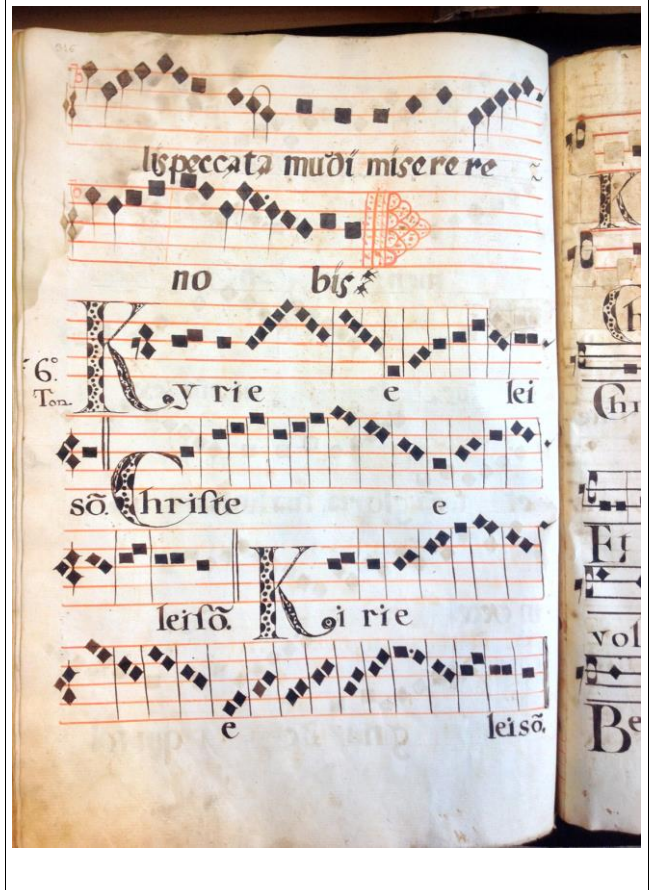 lis peccata mudi miserere
no bis
6º Ton.
Kyrie e lei
sõ. Christe e
leisõ. Kirie
e leisõ.
Chri
Et
vol
Be